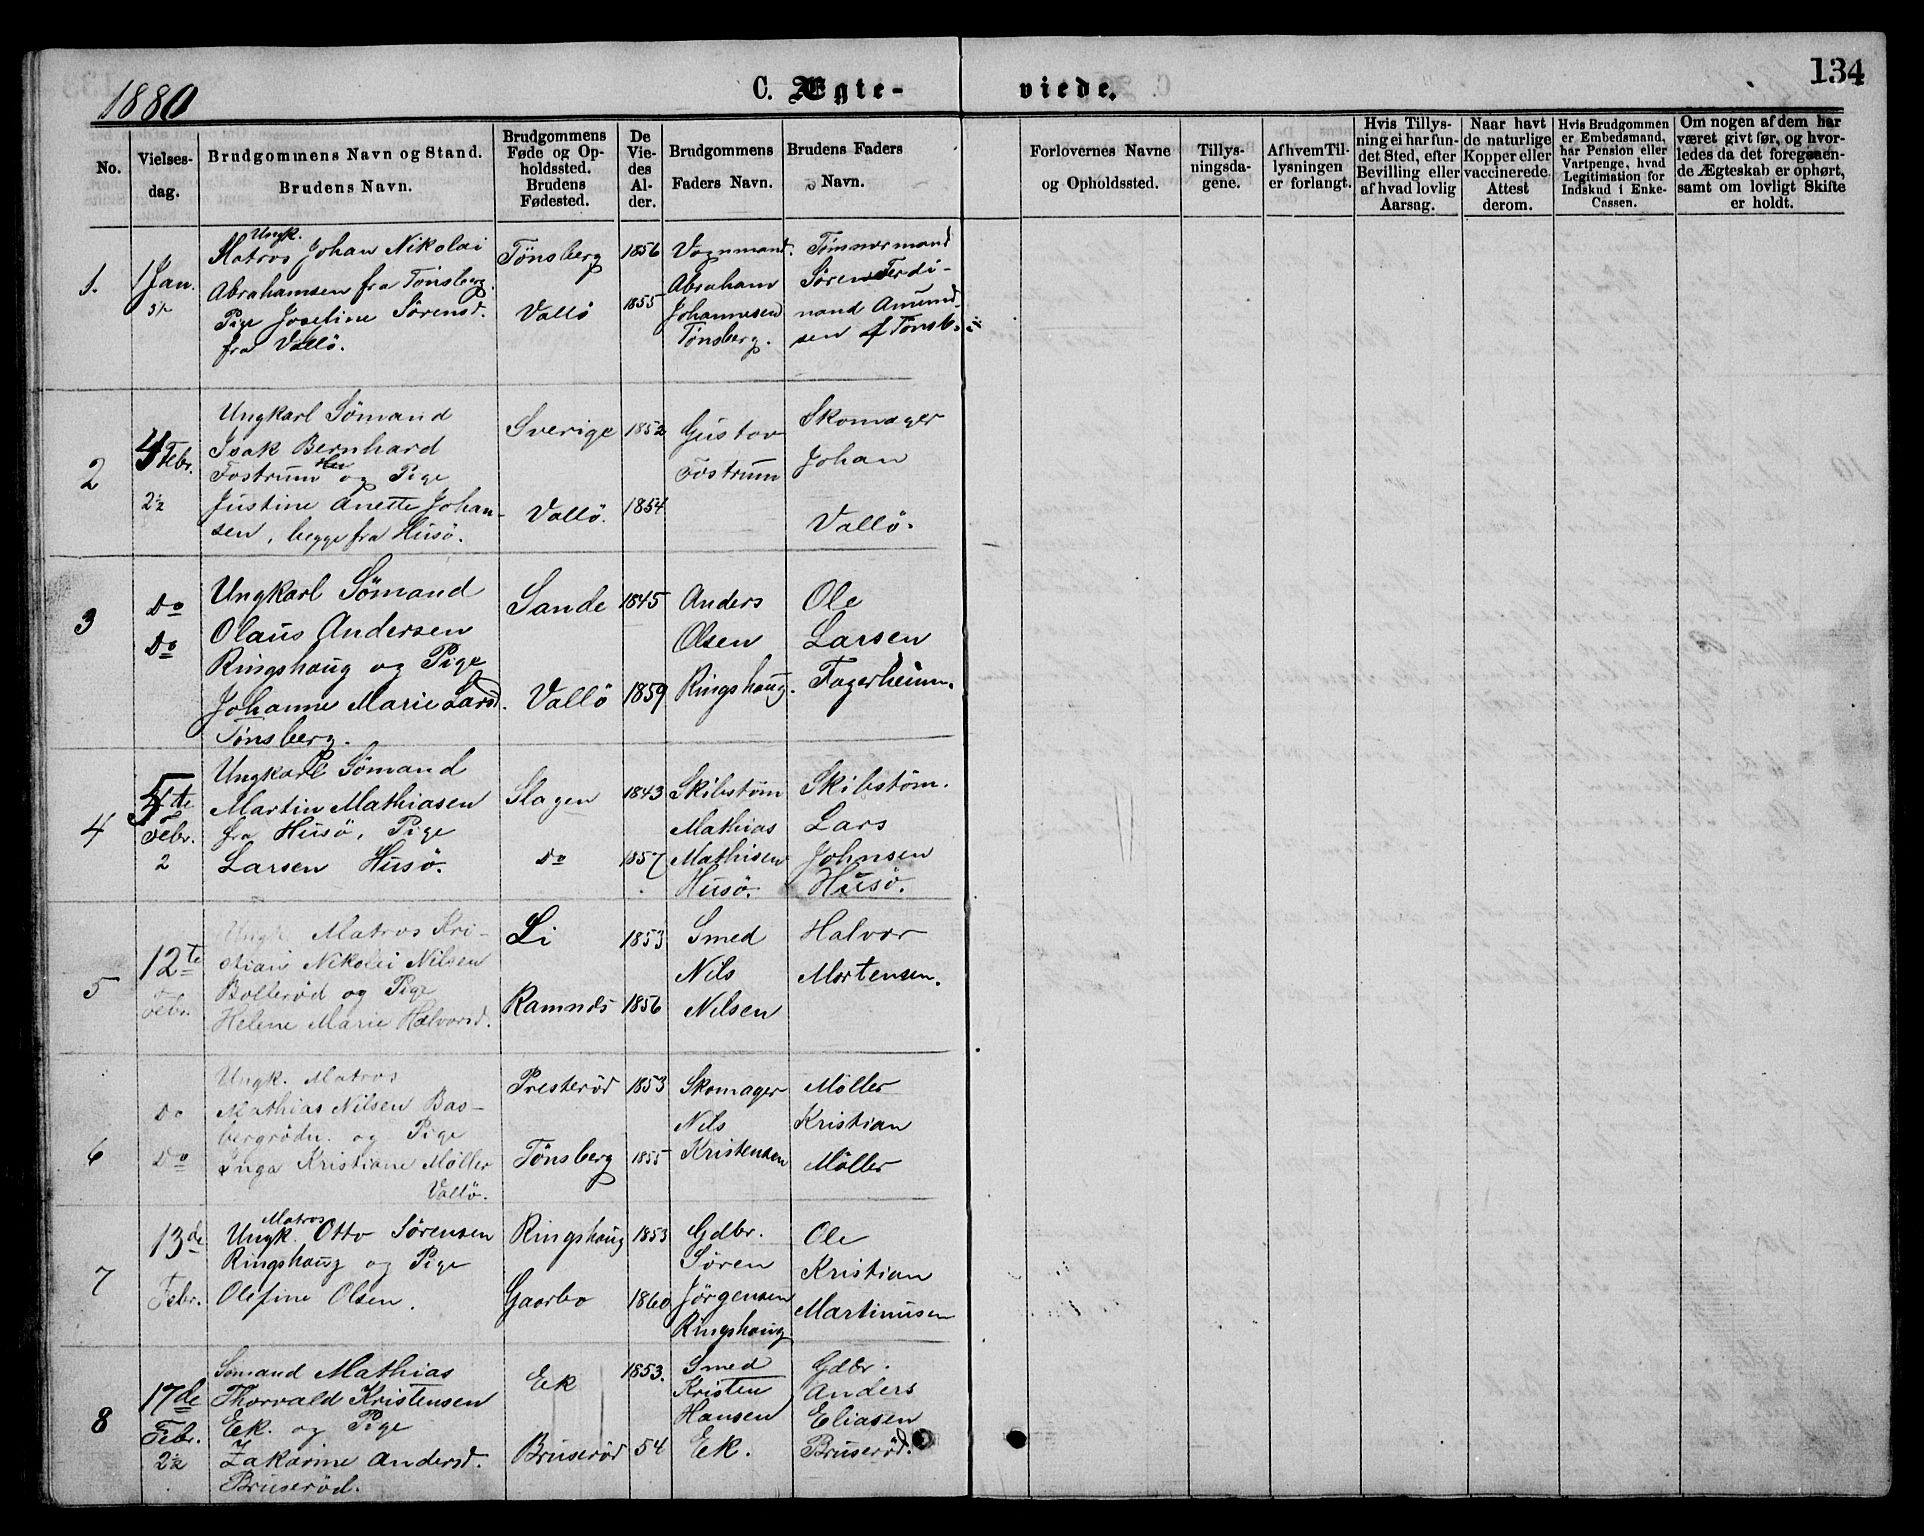 1880
C. Ægte-
viede.
134
No.
Vielses-
dag.
Brudgommens Navn og Stand.
Brudens Navn.
Brudgommens
Føde og Op-
holdssted.
Brudens
Fødested.
De
Vie-
des
Al-
der.
Brudgommens
Faders Navn.
Brudens Faders
Navn.
Forlovernes Navne
og Opholdssted.
Tillys-
ningsda-
gene.
Af hvem Til-
lysningen
er forlangt.
Hvis Tillys-
ning ei har fun-
det Sted, efter
Bevilling eller
af hvad lovlig
Aarsag.
Naar havt
de naturlige
Kopper eller
vaccinerede.
Attest
derom.
Hvis Brudgommen
er Embedsmand,
har Pension eller
Vartpenge, hvad
Legitimation for
Indskud i Enke-
Cassen.
Om nogen af dem har
været givt før, og hvor-
ledes da det foregaaen-
de Ægteskab er ophørt,
samt om lovligt Skifte
er holdt.
1.
1 Jan.
Ungk.
Matros Johan Nikolai
Abrahamsen fra Tønsberg.
Pige Josefine Sørensd.
fra Vallö.
Tønsberg
Vallö
1856
1855
Vognmand
Abraham
Johannesen
Tønsberg.
Tømmermand
Sören Ferdi-
nand Amund-
sen af Tønsb.
2
4 Febr.
2½
Ungkarl Sömand
Isak Bernhard
Fostrum og Pige
Justine Anette Johan-
sen, begge fra Husö.
Sverige
Vallö.
1852
1854
Gustav
Fostrum
Skomager
Johan
Vallö.
3
Do
Do
Ungkarl Sömand
Olaus Andersen
Ringshaug og Pige
Johanne Marie Larsd.
Tønsberg.
Sande
Vallö
1845
1859
Anders
Olsen
Ringshaug.
Ole
Larsen
Fagerheim.
4
5te
Febr.
2
Ungkarl Sömand
Martin Mathiasen
fra Husö, Pige
Larsen Husö.
Slagen
Do
1843
1857
Skibstöm
Mathias
Mathisen
Husö.
Skibstöm.
Lars
Johnsen
Husö.
5
12te
Febr.
Ungk. Matros Kri-
stian Nikolei Nilsen
Bollerød og Pige
Helene Marie Halvorsd.
Li
Ramnes
1853
1856
Smed
Nils
Nilsen
Halvor
Mortensen.
6
Do
Do
Ungk. Matros
Mathias Nilsen Bas-
bergrödn. og Pige
Inga Kristiane Möller
Vallö.
Presteröd
Tönsberg
1853
1855
Skomager
Nils
Kristensen
Möller
Kristian
Möller
7
13de
Febr.
Matros
Ungk. Otto Sörensen
Ringshaug og Pige
Olefine Olsen.
Ringshaug
Gaarbo
1853
1860
Gdbr.
Sören
Jörgensen
Ringshaug
Ole
Kristian
Martinusen
8
17de
Febr.
2½
Sömand Mathias
Thorvald Kristensen
Ek. og Pige
Zakarine Andersd.
Bruseröd.
Ek
Bruseröd
1853.
54
Smed
Kristen
Hansen
Ek.
Gdbr.
Anders
Eliasen
Bruseröd.